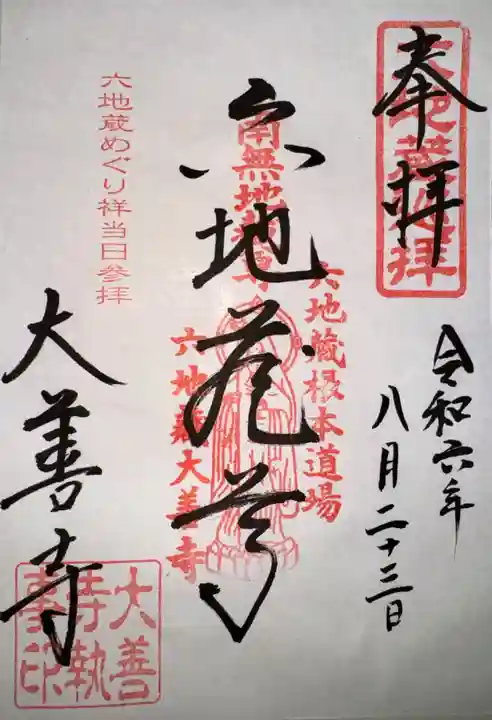 奉拝
六地蔵巡拝
令和六年
八月二十三日
六地蔵尊
南無地蔵尊
六地蔵根本道場
六地蔵大善寺
六地蔵めぐり祥当日参拝
大善寺
大善
寺執
事印